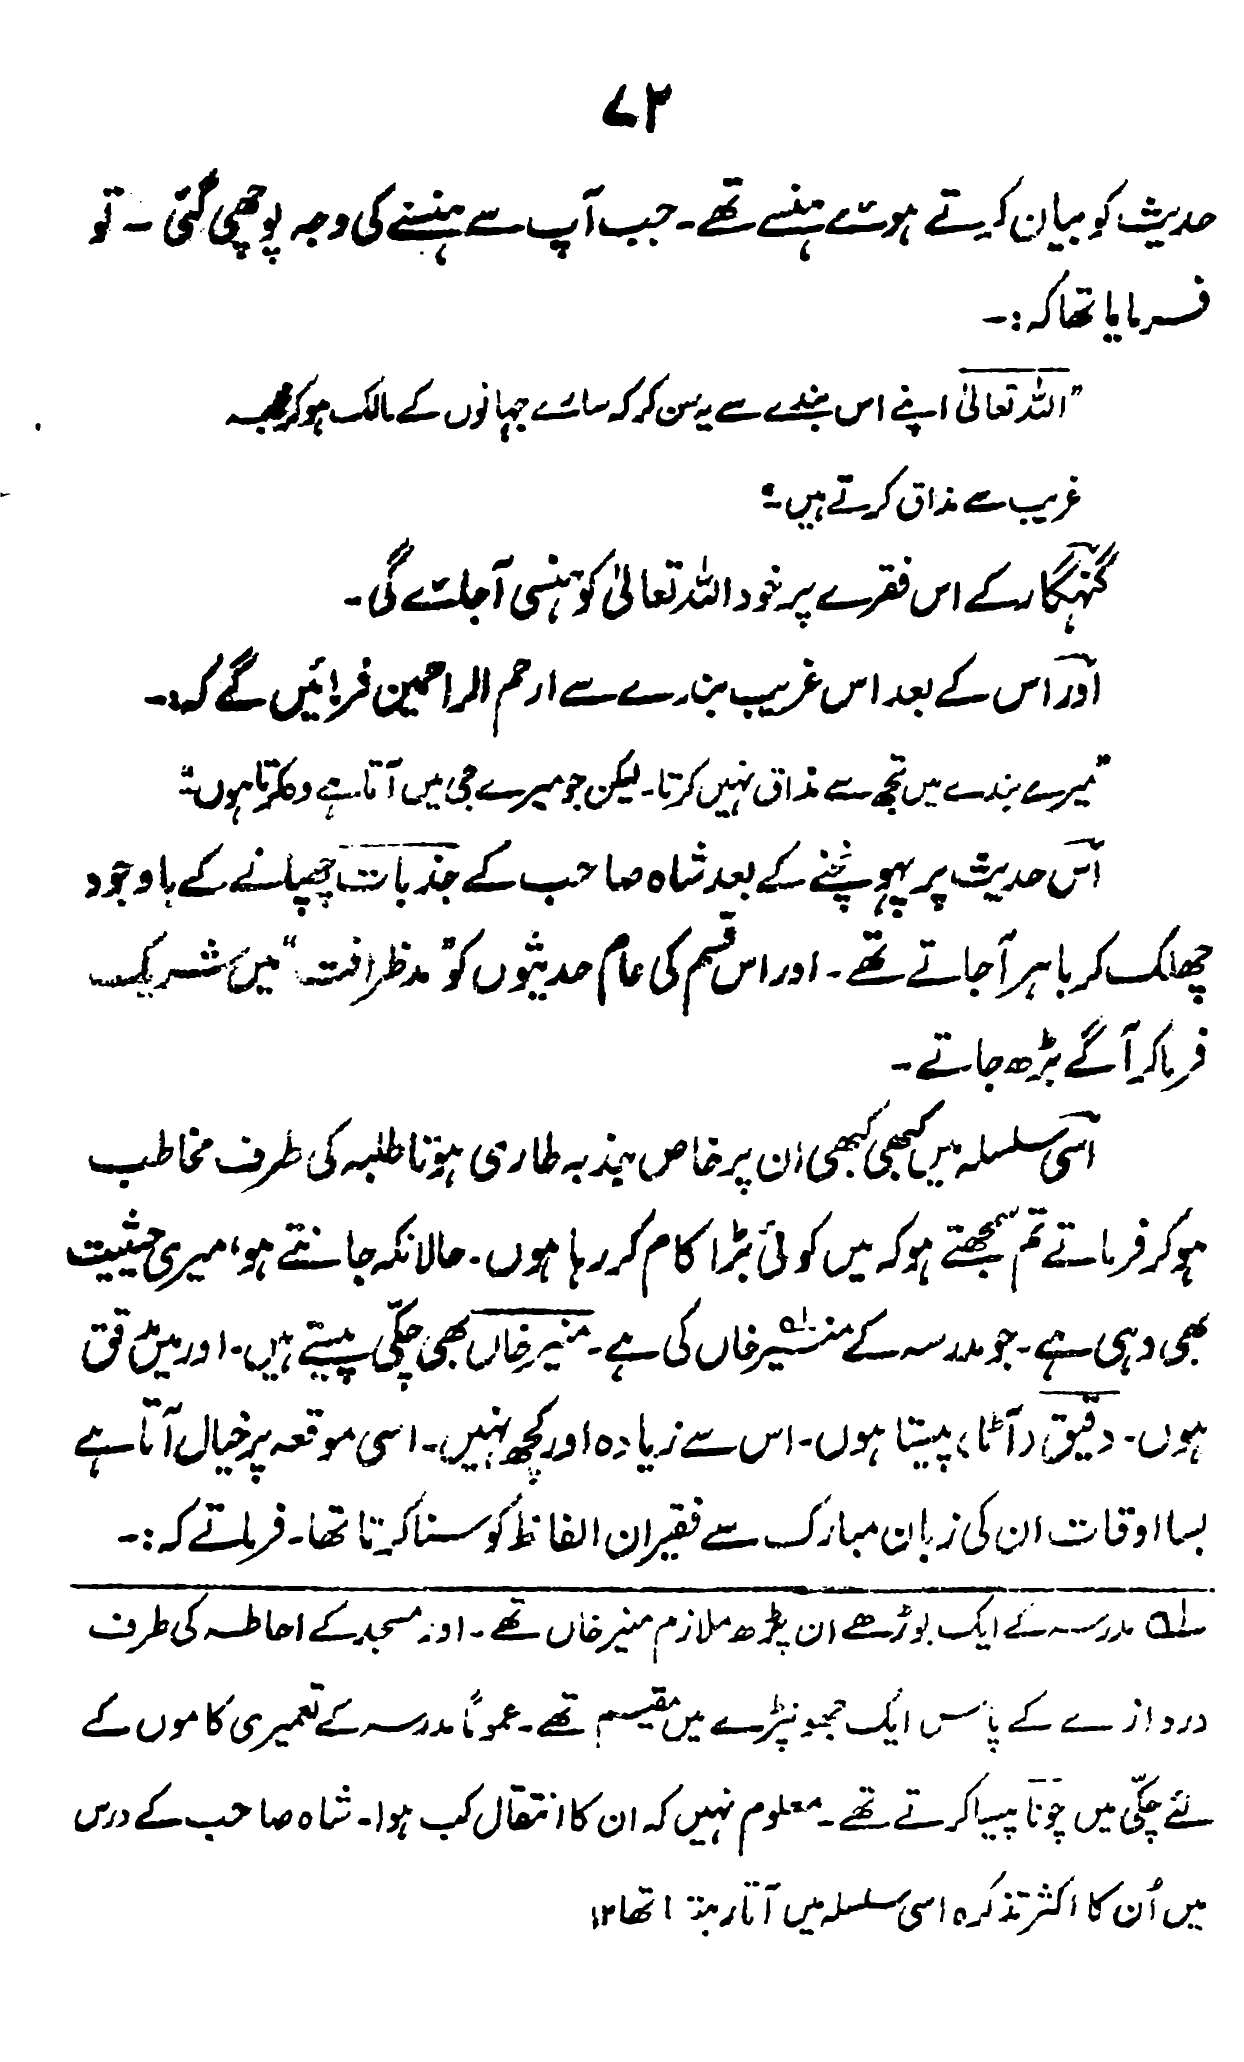 ۷۲
حدیث کو بیان کرتے ہوئے ہنسے تھے۔ جب آپ سے ہنسنے کی وجہ پوچھی گئی ۔ تو
فرمایا تھا کہ :۔
"اللہ تعالیٰ اپنے اس بندے سے یہ سن کر کہ سارے جہانوں کے مالک ہو کر
غریب سے مذاق کرتے ہیں۔"
گنہگار کے اس فقرے پر خود اللہ تعالیٰ کو ہنسی آجائے گی۔
اور اس کے بعد اس غریب بندے سے ارحم الراحمین فرمائیں گے کہ:۔
"میرے بندے میں تجھ سے مذاق نہیں کرتا۔ لیکن جو میرے جی میں آتا ہے وہ کرتا ہوں۔"
اس حدیث پر پہونچنے کے بعد شاہ صاحب کے جذبات چھپانے کے باوجود
چھلک کر باہر آجاتے تھے۔ اور اس قسم کی عام حدیثوں کو "مد ظرافت" میں شریک
فرما کر آگے بڑھ جاتے۔
اسی سلسلہ میں کبھی کبھی ان پر خاص جذبہ طاری ہوتا طلبہ کی طرف مخاطب
ہو کر فرماتے تم سمجھتے ہو کہ میں کوئی بڑا کام کر رہا ہوں۔ حالانکہ جانتے ہو، میری حیثیت
بھی وہی ہے۔ جو مدرسہ کے منیر خاں لہ کی ہے۔ منیر خاں بھی چکّی پیستے ہیں۔ اور میں دقق
ہوں۔ دقیق (آٹا) پیستا ہوں۔ اس سے زیادہ اور کچھ نہیں۔ اسی موقعہ پر خیال آتا ہے
بسا اوقات ان کی زبان مبارک سے فقیر ان الفاظ کو سنا کرتا تھا۔ فرماتے کہ :۔
لہ مدرسہ کے ایک بوڑھے ان پڑھ ملازم منیر خاں تھے۔ اور مسجد کے احاطہ کی طرف
دروازے کے پاس ایک جھونپڑے میں مقیم تھے۔ عموماً مدرسہ کے تعمیری کاموں کے
لئے چکّی میں چونا پیسا کرتے تھے۔ معلوم نہیں کہ ان کا انتقال کب ہوا۔ شاہ صاحب کے درس
میں اُن کا اکثر تذکرہ اسی سلسلہ میں آتا رہتا تھا ۱۲